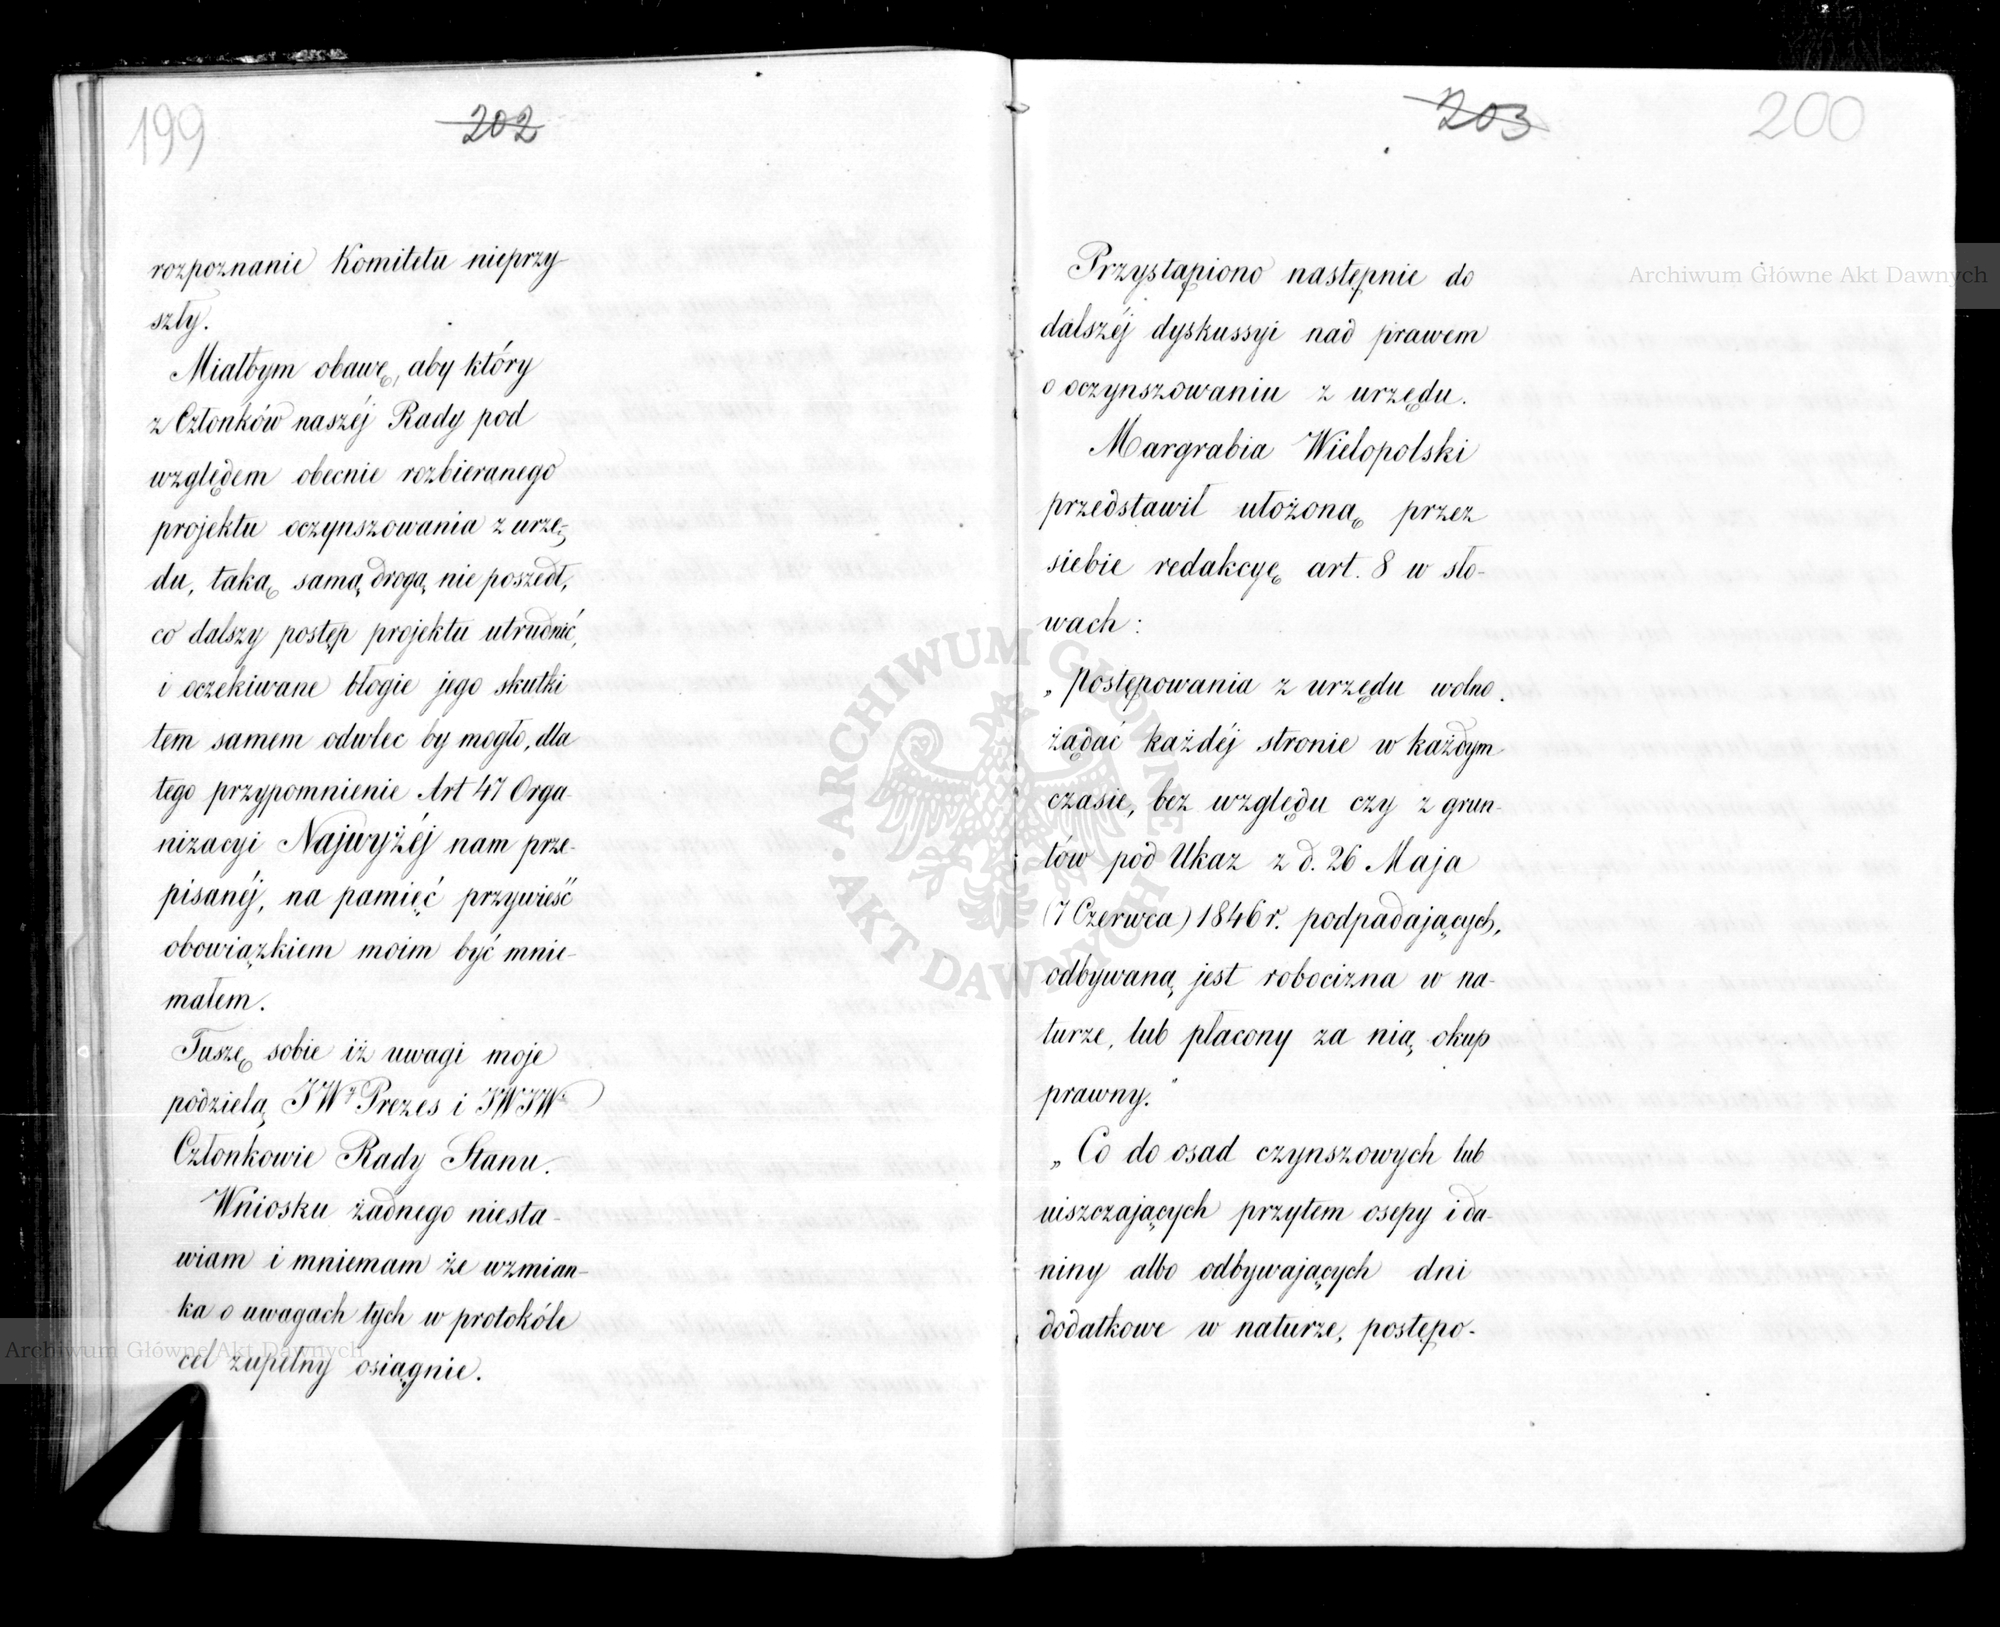 199
202
rozpoznanie Komitetu nieprzy-
szły.
Miałbym obawę, aby który
z Członków naszéj Rady pod
względem obecnie rozbieranego
projektu oczynszowania z urzę-
du, taką samą drogą nie poszedł,
co dalszy postęp projektu utrudnić,
i oczekiwane błogie jego skutki
tem samem odwlec by mogło, dla
tego przypomnienie Art 47 Orga-
nizacyi Najwyżéj nam prze-
pisanéj, na pamięć przywieść
obowiązkiem moim być mnie-
małem.
Tuszę sobie iż uwagi moje
podzielą JWy Prezes i JWJWi
Członkowie Rady Stanu.
Wniosku żadnego niesta-
wiam i mniemam że wzmian-
ka o uwagach tych w protokóle
cel zupełny osiągnie.
203
200
Przystąpiono następnie do
dalszéj dyskussyi nad prawem
o oczynszowaniu z urzędu.
Margrabia Wielopolski
przedstawił ułożoną przez
siebie redakcyę art. 8 w sło-
wach:
„Postępowania z urzędu wolno
żądać każdéj stronie w każdym
czasie, bez względu czy z grun-
tów pod Ukaz z d. 26 Maja
(7 Czerwca) 1846 r. podpadających,
odbywaną jest robocizna w na-
turze, lub płacony za nią okup
prawny."
„Co do osad czynszowych lub
uiszczających przytem osepy i da-
niny albo odbywających dni
dodatkowe w naturze, postępo-
Archiwum Główne Akt Dawnych
Archiwum Główne Akt Dawnych
ARCHIWUM GŁÓWNE AKT DAWNYCH